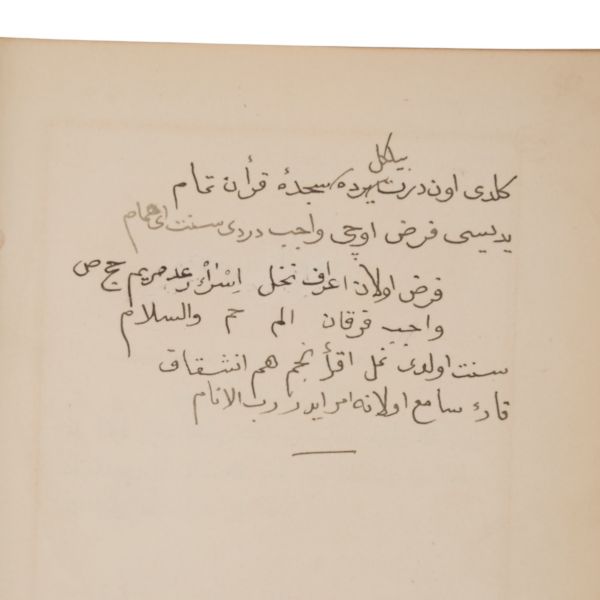 بيلكل
كلدى اون درت يرده سجدۀ قرأن تمام
يديسى فرض اوچى واجب دردى سنت اى همام
فرض اولان اعراف نخل اسرٰى رعد مريم حج ص
واجب فرقان الم حم والسلام
سنت اولدى نمل اقرأ نجم هم انشقاق
قارئ سامع اولانه امر ايدر رب الانام